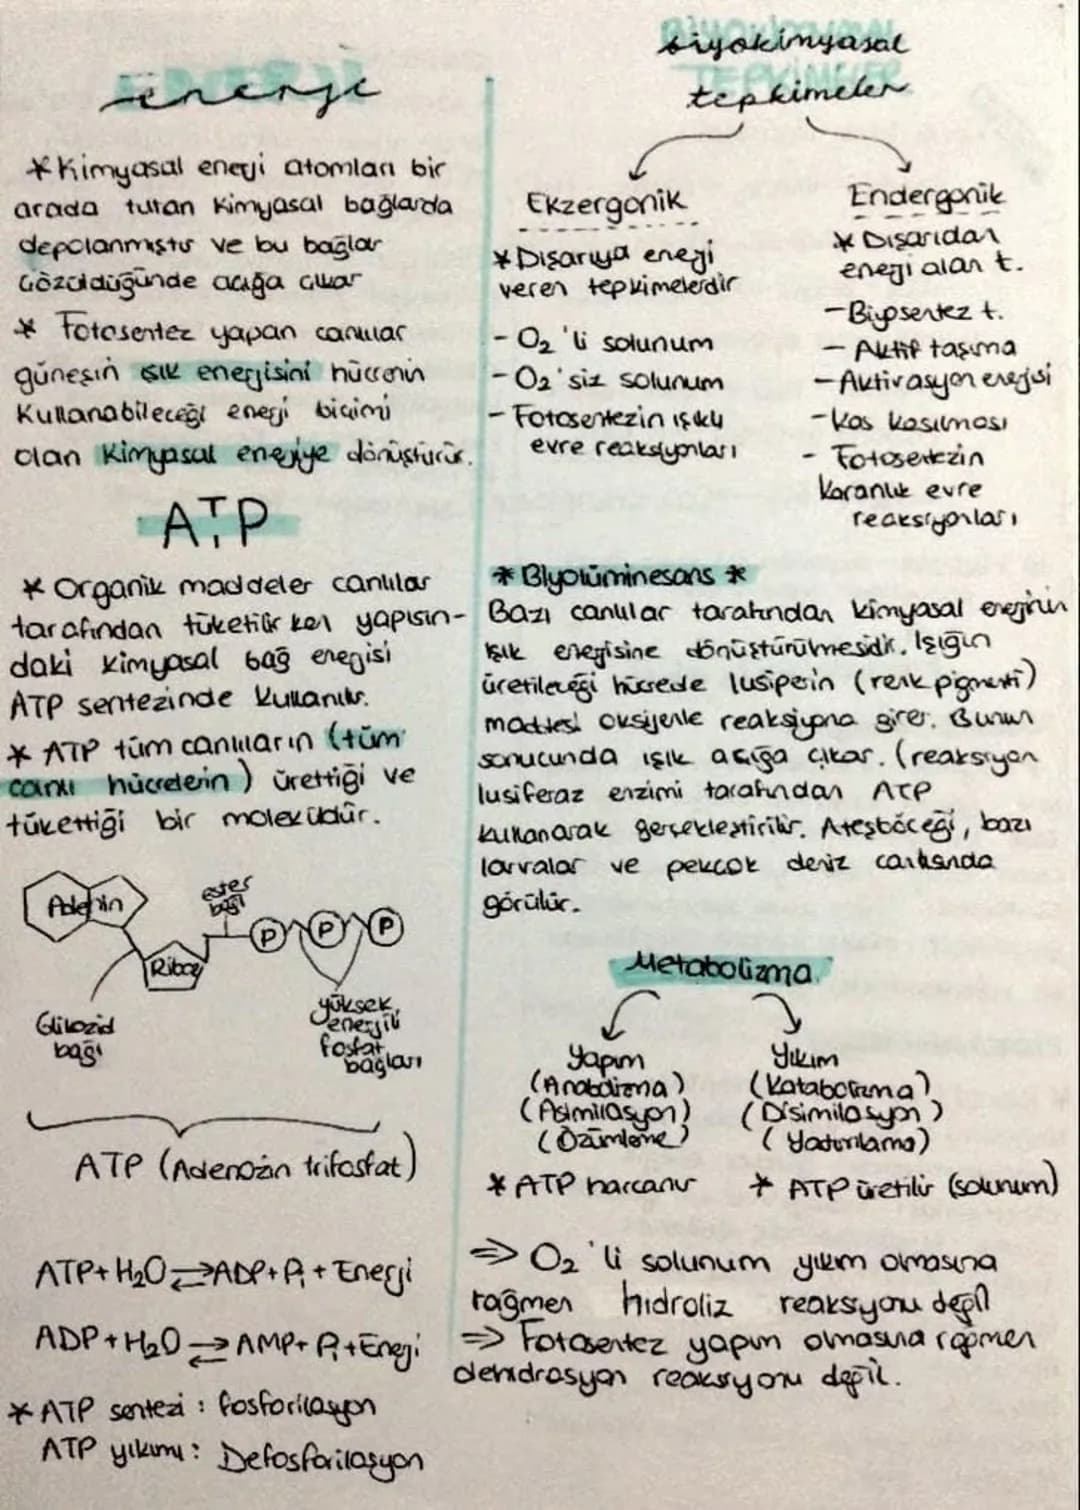 energi
*Kimyasal enerji atomları bir
arada tutan kimyasal bağlarda
depolanmıştır ve bu bağlar
çözüldüğünde açığa çıkar
* Fotosentez yapan canlılar
güneşin ışık enerjisini hücrenin
kullanabileceği enerji biçimi
olan kimyasal enerjiye dönüştürür.
ATP
* Organik maddeler canlılar
tarafından tüketilirken yapısın-
daki kimyasal bağ enerjisi
ATP sentezinde kullanılır.
* ATP tüm canlıların (tüm
canlı hücrelerin) ürettiği ve
tükettiği bir moleküldür.
Adenin
ester
bağı
P P P
Riboz
Glikozid
bağı
yüksek
enerjili
fosfat
bağları
ATP (Adenozin trifosfat)
ATP+H₂O⇌ADP+Pi+Enerji
ADP+H₂O⇌AMP+Pi+Enerji
* ATP sentezi : fosforilasyon
ATP yıkımı : Defosforilasyon
biyokimyasal
tepkimeler
Ekzergonik
*Dışarıya enerji
veren tepkimelerdir
- O₂'li solunum
- O₂'siz solunum
- Fotosentezin ışıklı
evre reaksiyonları
Endergonik
* Dışarıdan
enerji alan t.
- Biyosentez t.
- Aktif taşıma
- Aktivasyon enerjisi
- Kas kasılması
- Fotosentezin
karanlık evre
reaksiyonları
* Biyolüminesans *
Bazı canlılar tarafından kimyasal enerjinin
ışık enerjisine dönüştürülmesidir. Işığın
üretileceği hücrede lusiperin (renk pigmenti)
maddesi oksijenle reaksiyona girer. Bunun
sonucunda ışık açığa çıkar. (reaksiyon
lusiferaz enzimi tarafından ATP
kullanarak gerçekleştirilir. Ateşböceği, bazı
larvalar ve pekçok deniz canlısında
görülür.
Metabolizma
Yapım
(Anabolizma)
(Asimilasyon)
(Özümleme)
* ATP harcanır
Yıkım
(Katabolizma)
(Disimilasyon)
(Yadımlama)
* ATP üretilir (solunum)
⇒ O₂'li solunum yıkım olmasına
rağmen hidroliz reaksiyonu değil
⇒ Fotosentez yapım olmasına rağmen
dehidrasyon reaksiyonu değil.